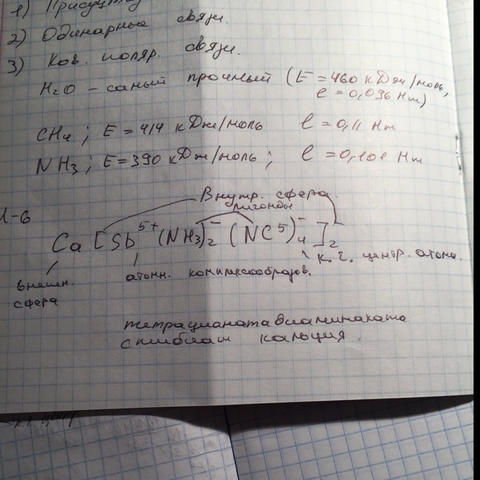 1) Присутству
2) Одинарные связи.
3) Ков. поляр. связи.
H2O - самый прочный (E = 460 кДж/моль,
l = 0,096 Нм)
CH4 ; E = 414 кДж/моль l = 0,11 Нм
NH3 ; E = 390 кДж/моль ; l = 0,101 Нм
1-6
Внутр. сфера
лиганды
Ca [Sb5+ (NH3)2- (NC5)4- ]2
к.ч. центр. атома.
внешн. атомн. комплексообразов.
сфера
тетрацианатадиаминаката
кальция